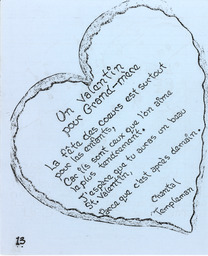 Un Valentin
pour Grand-mère
La fête des coeurs est surtout
pour les enfants,
Car ils sont ceux que l'on aime
le plus tendrement.
J'espère que tu auras un beau
St Valentin,
Parce que c'est après demain.
Chantal
Templeman
13